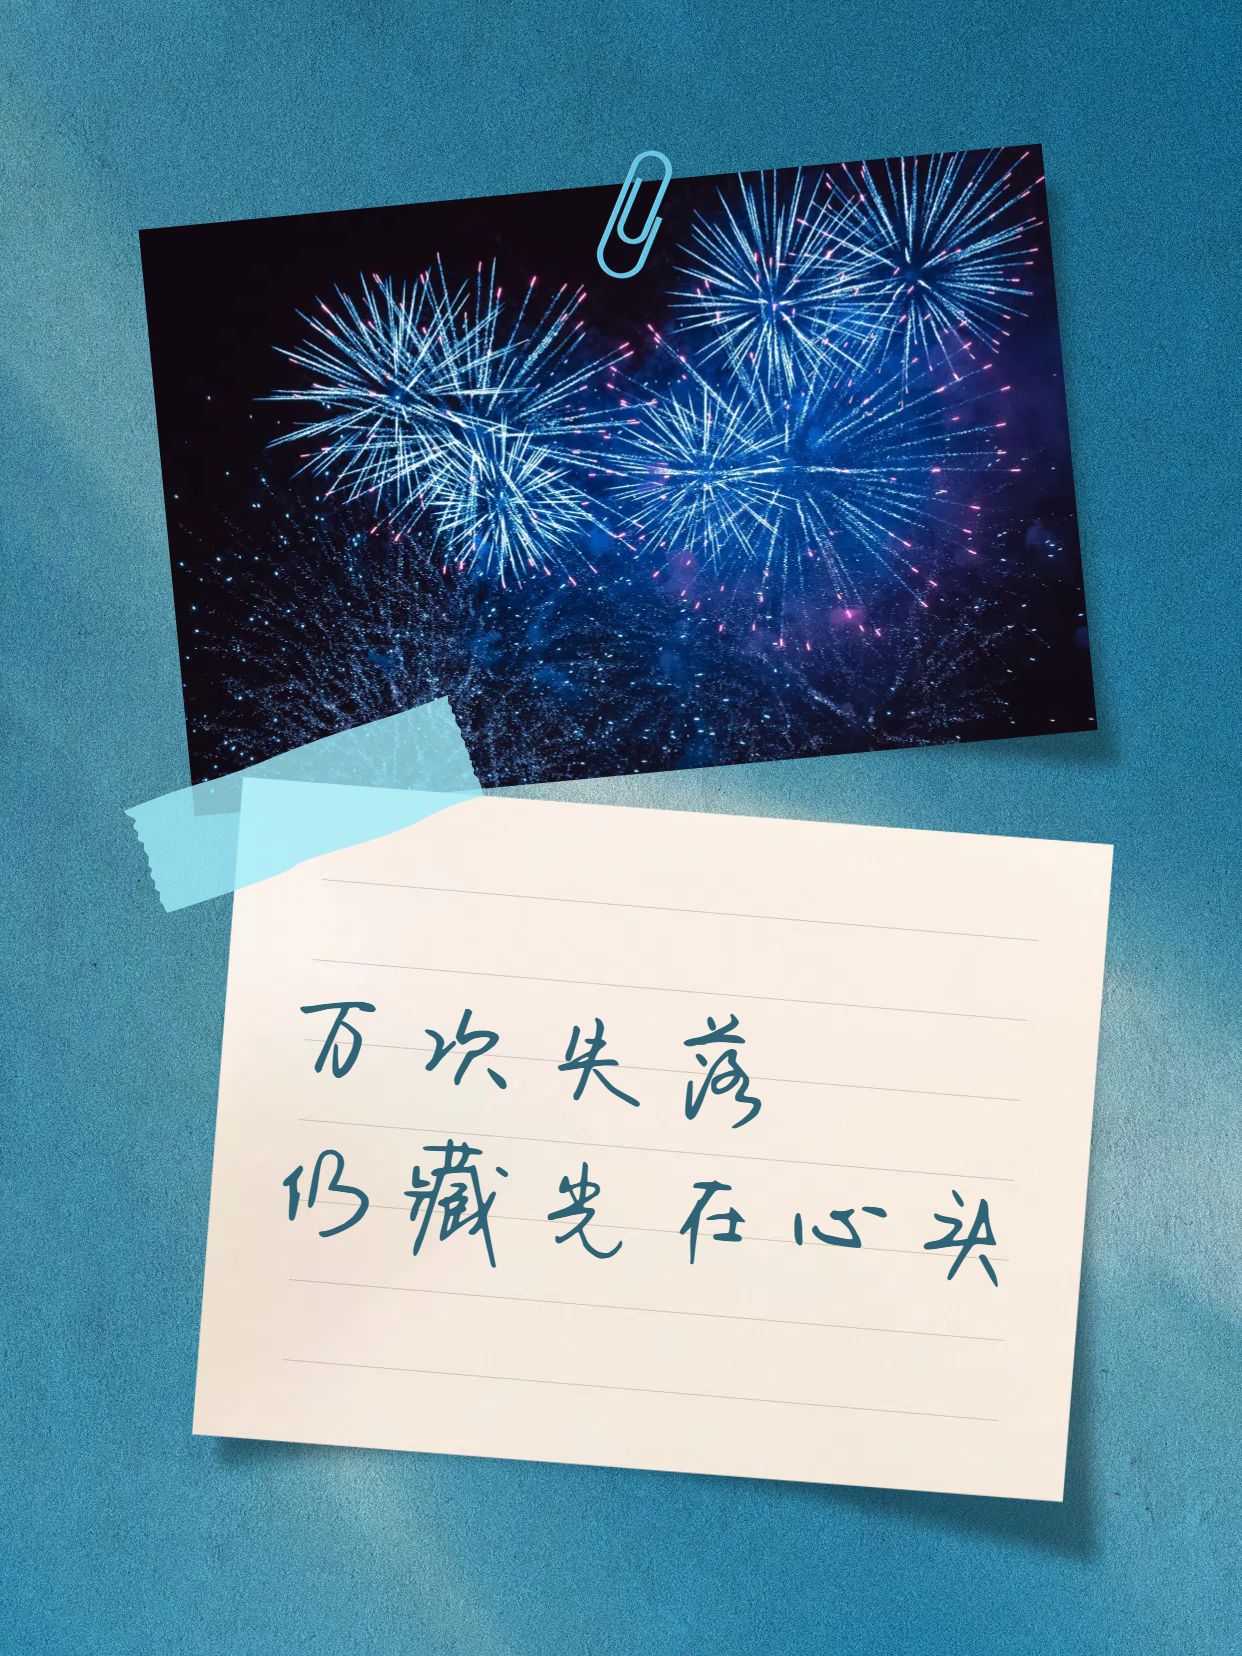 万次失落
仍藏光在心头